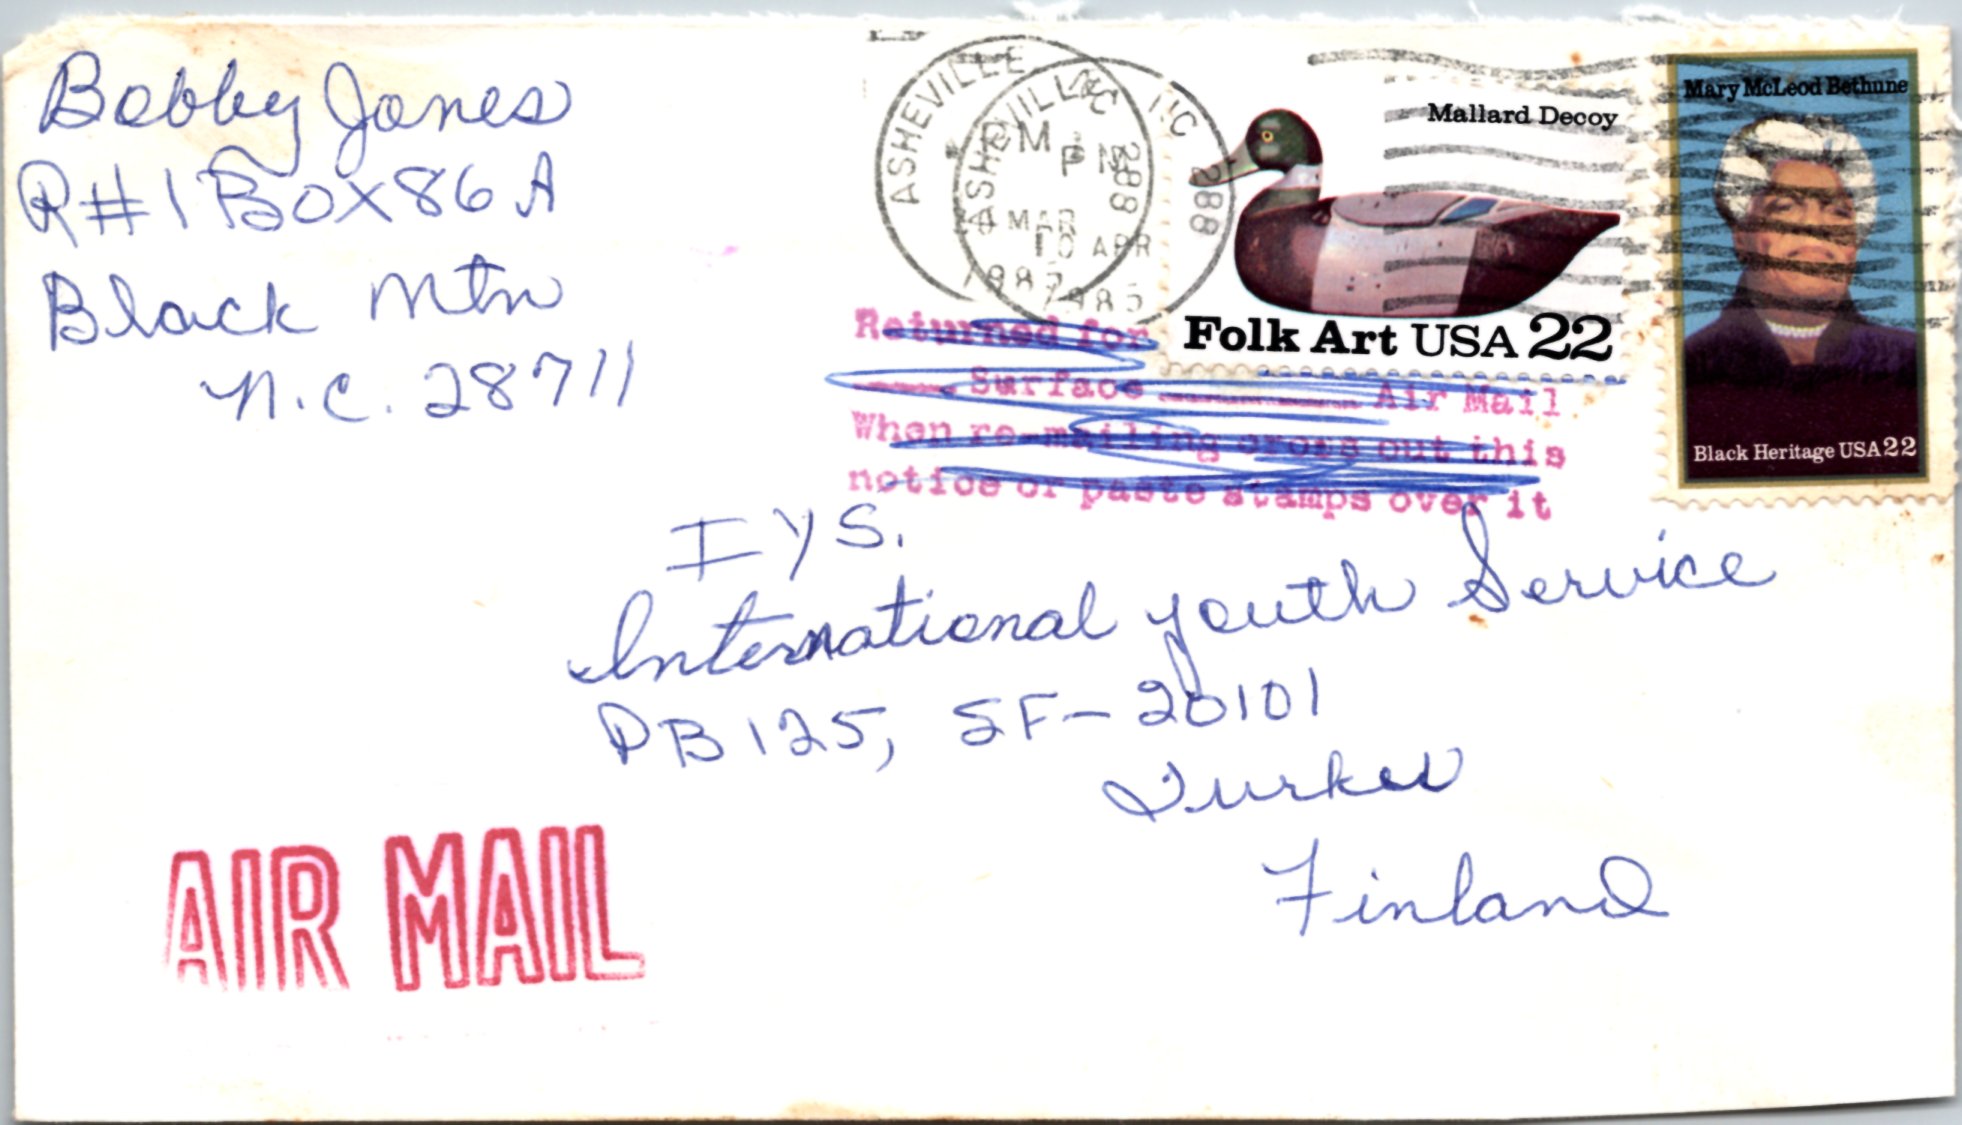 Bobby Jones
R#1 Box86 A
Black Mtn
N.C. 28711
ASHEVILLE NC 288
PM
MAR
ASHEVILLE NC 288
PM
10 APR
1985
Mallard Decoy
Folk Art USA 22
Mary McLeod Bethune
Black Heritage USA 22
Returned for
Surface Air Mail
When re-mailing cross out this
notice or paste stamps over it
IYS.
International Youth Service
PB 125, SF-20101
Turku
Finland
AIR MAIL